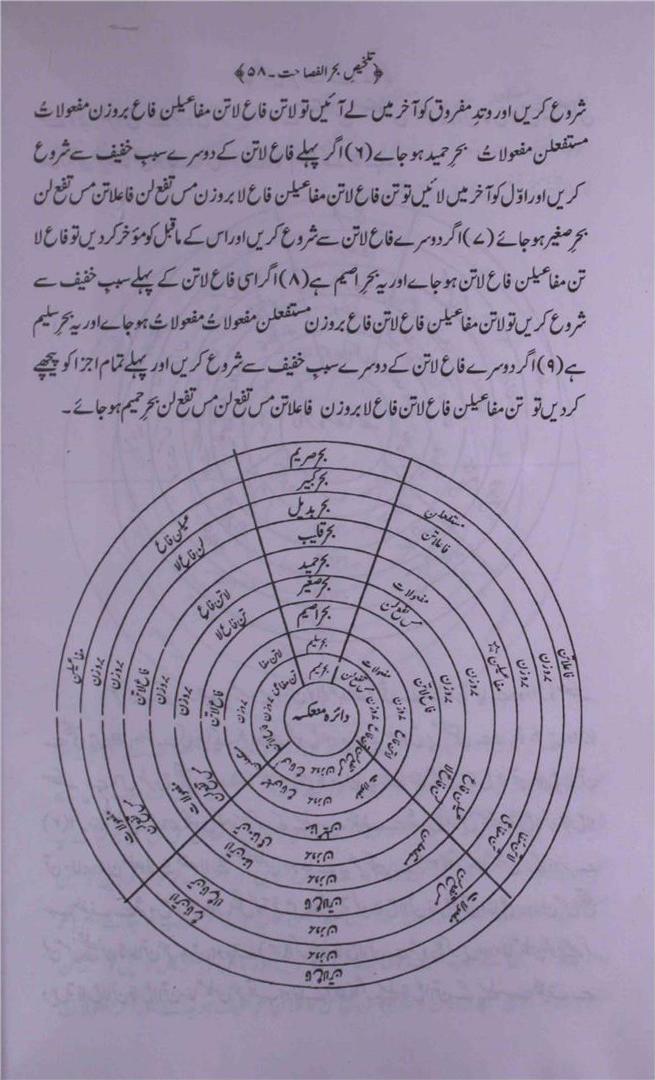 ﴿تلخیصِ بحر الفصاحت۔۵۸﴾
شروع کریں اور وتدِ مفروق کو آخر میں لے آئیں تو لاتن فاع لاتن مفاعیلن فاع بروزن مفعولاتُ
مستفعلن مفعولاتُ بحرِ حمید ہو جائے (۶) اگر پہلے فاع لاتن کے دوسرے سببِ خفیف سے شروع
کریں اور اوّل کو آخر میں لائیں تو تن فاع لاتن مفاعیلن فاع لا بروزن مس تفع لن فاعلاتن مس تفع لن
بحرِ صغیر ہو جائے (۷) اگر دوسرے فاع لاتن سے شروع کریں اور اس کے ماقبل کو مؤخر کر دیں تو فاع لا
تن مفاعیلن فاع لاتن ہو جائے اور یہ بحرِ اصیم ہے (۸) اگر اسی فاع لاتن کے پہلے سببِ خفیف سے
شروع کریں تو لاتن مفاعیلن فاع لاتن فاع بروزن مستفعلن مفعولاتُ مفعولاتُ ہو جائے اور یہ بحرِ سلیم
ہے (۹) اگر دوسرے فاع لاتن کے دوسرے سببِ خفیف سے شروع کریں اور پہلے تمام اجزا کو پیچھے
کر دیں تو تن مفاعیلن فاع لاتن فاع لا بروزن فاعلاتن مس تفع لن مس تفع لن بحرِ حمیم ہو جائے۔
بحر صریم
بحر کبیر
بحر بدیل
بحر قلیب
بحر حمید
بحر صغیر
بحر اصیم
بحر سلیم
بحر حمیم
دائرہ منعکسہ
مستفعلن
فاعلاتن
مفعولات
مس تفع لن
مفعولات
فاعلاتن
بروزن
بروزن
مفاعیلن
بروزن
بروزن
فاع لاتن
بروزن
عیلن فاع
لن فاع لا
لاتن فاع
تن فاع لا
لاتن مفا
تن مفاعی
مفاعیلن
بروزن
بروزن
فاع لاتن
بروزن
فاع لاتن
بروزن
بروزن
بروزن
مفاعیلن
بروزن
بروزن
فاع لاتن
بروزن
بروزن
فاع لاتن